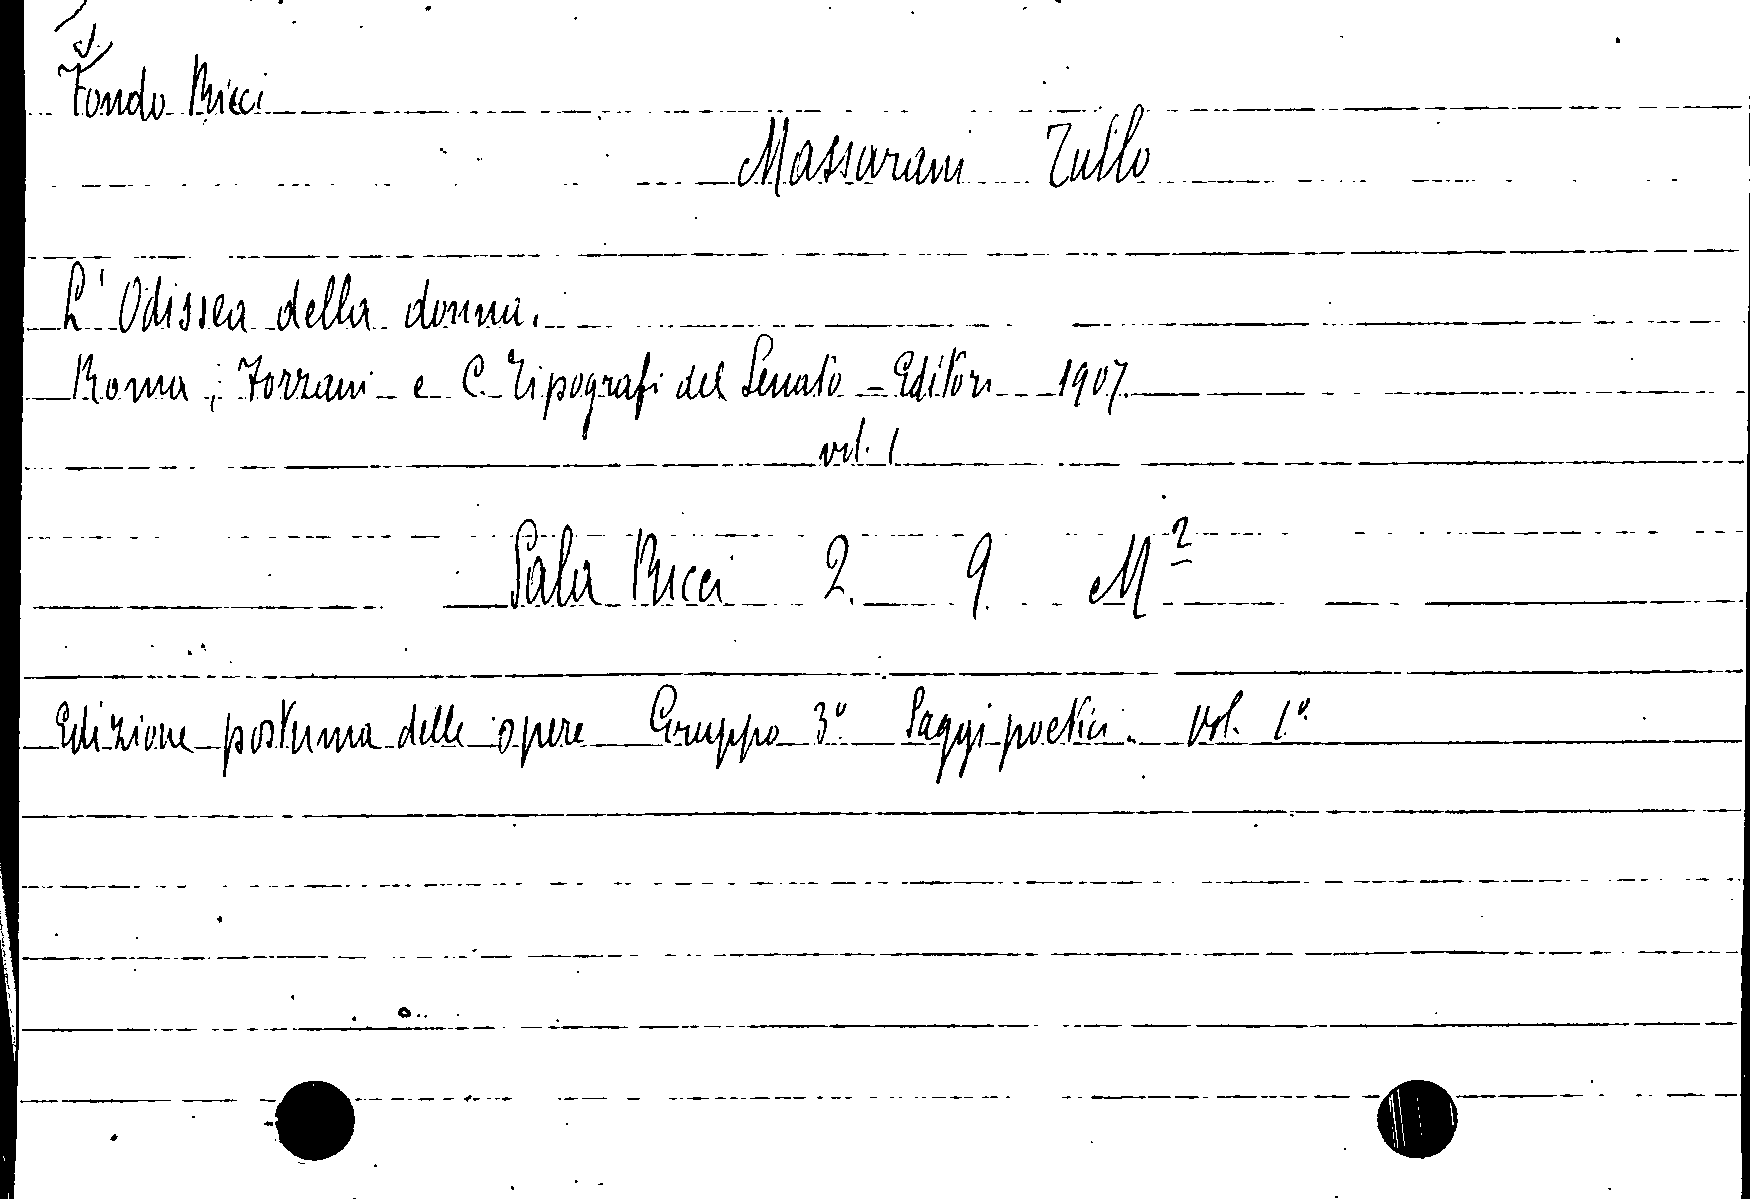 Fondo Ricci
Massarani Tullo
L'Odissea della donna.
Roma, Forzani e C. Tipografi del Senato - Editori 1907.
vol. 1
Sala Ricci 2. 9. M²
Edizione postuma delle opere Gruppo 3° Saggi poetici. Vol. 1°